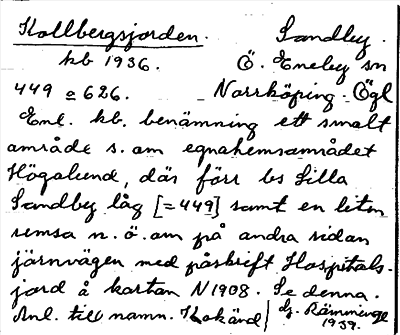 Kollbergsjorden. Sandby.
kb 1936. Ö. Eneby sn
449 o 626. Norrköping. Ögl
Enl. kb. benämning ett smalt
område s. om egnahemsområdet
Högalund, där förr bs Lilla
Sandby låg [= 449] samt en liten
remsa n. ö. om på andra sidan
järnvägen med påskrift Hospitals-
jord å kartan N 1908. Se denna.
Anl. till namn. Okänd/ Hj. Rämminge
1939.